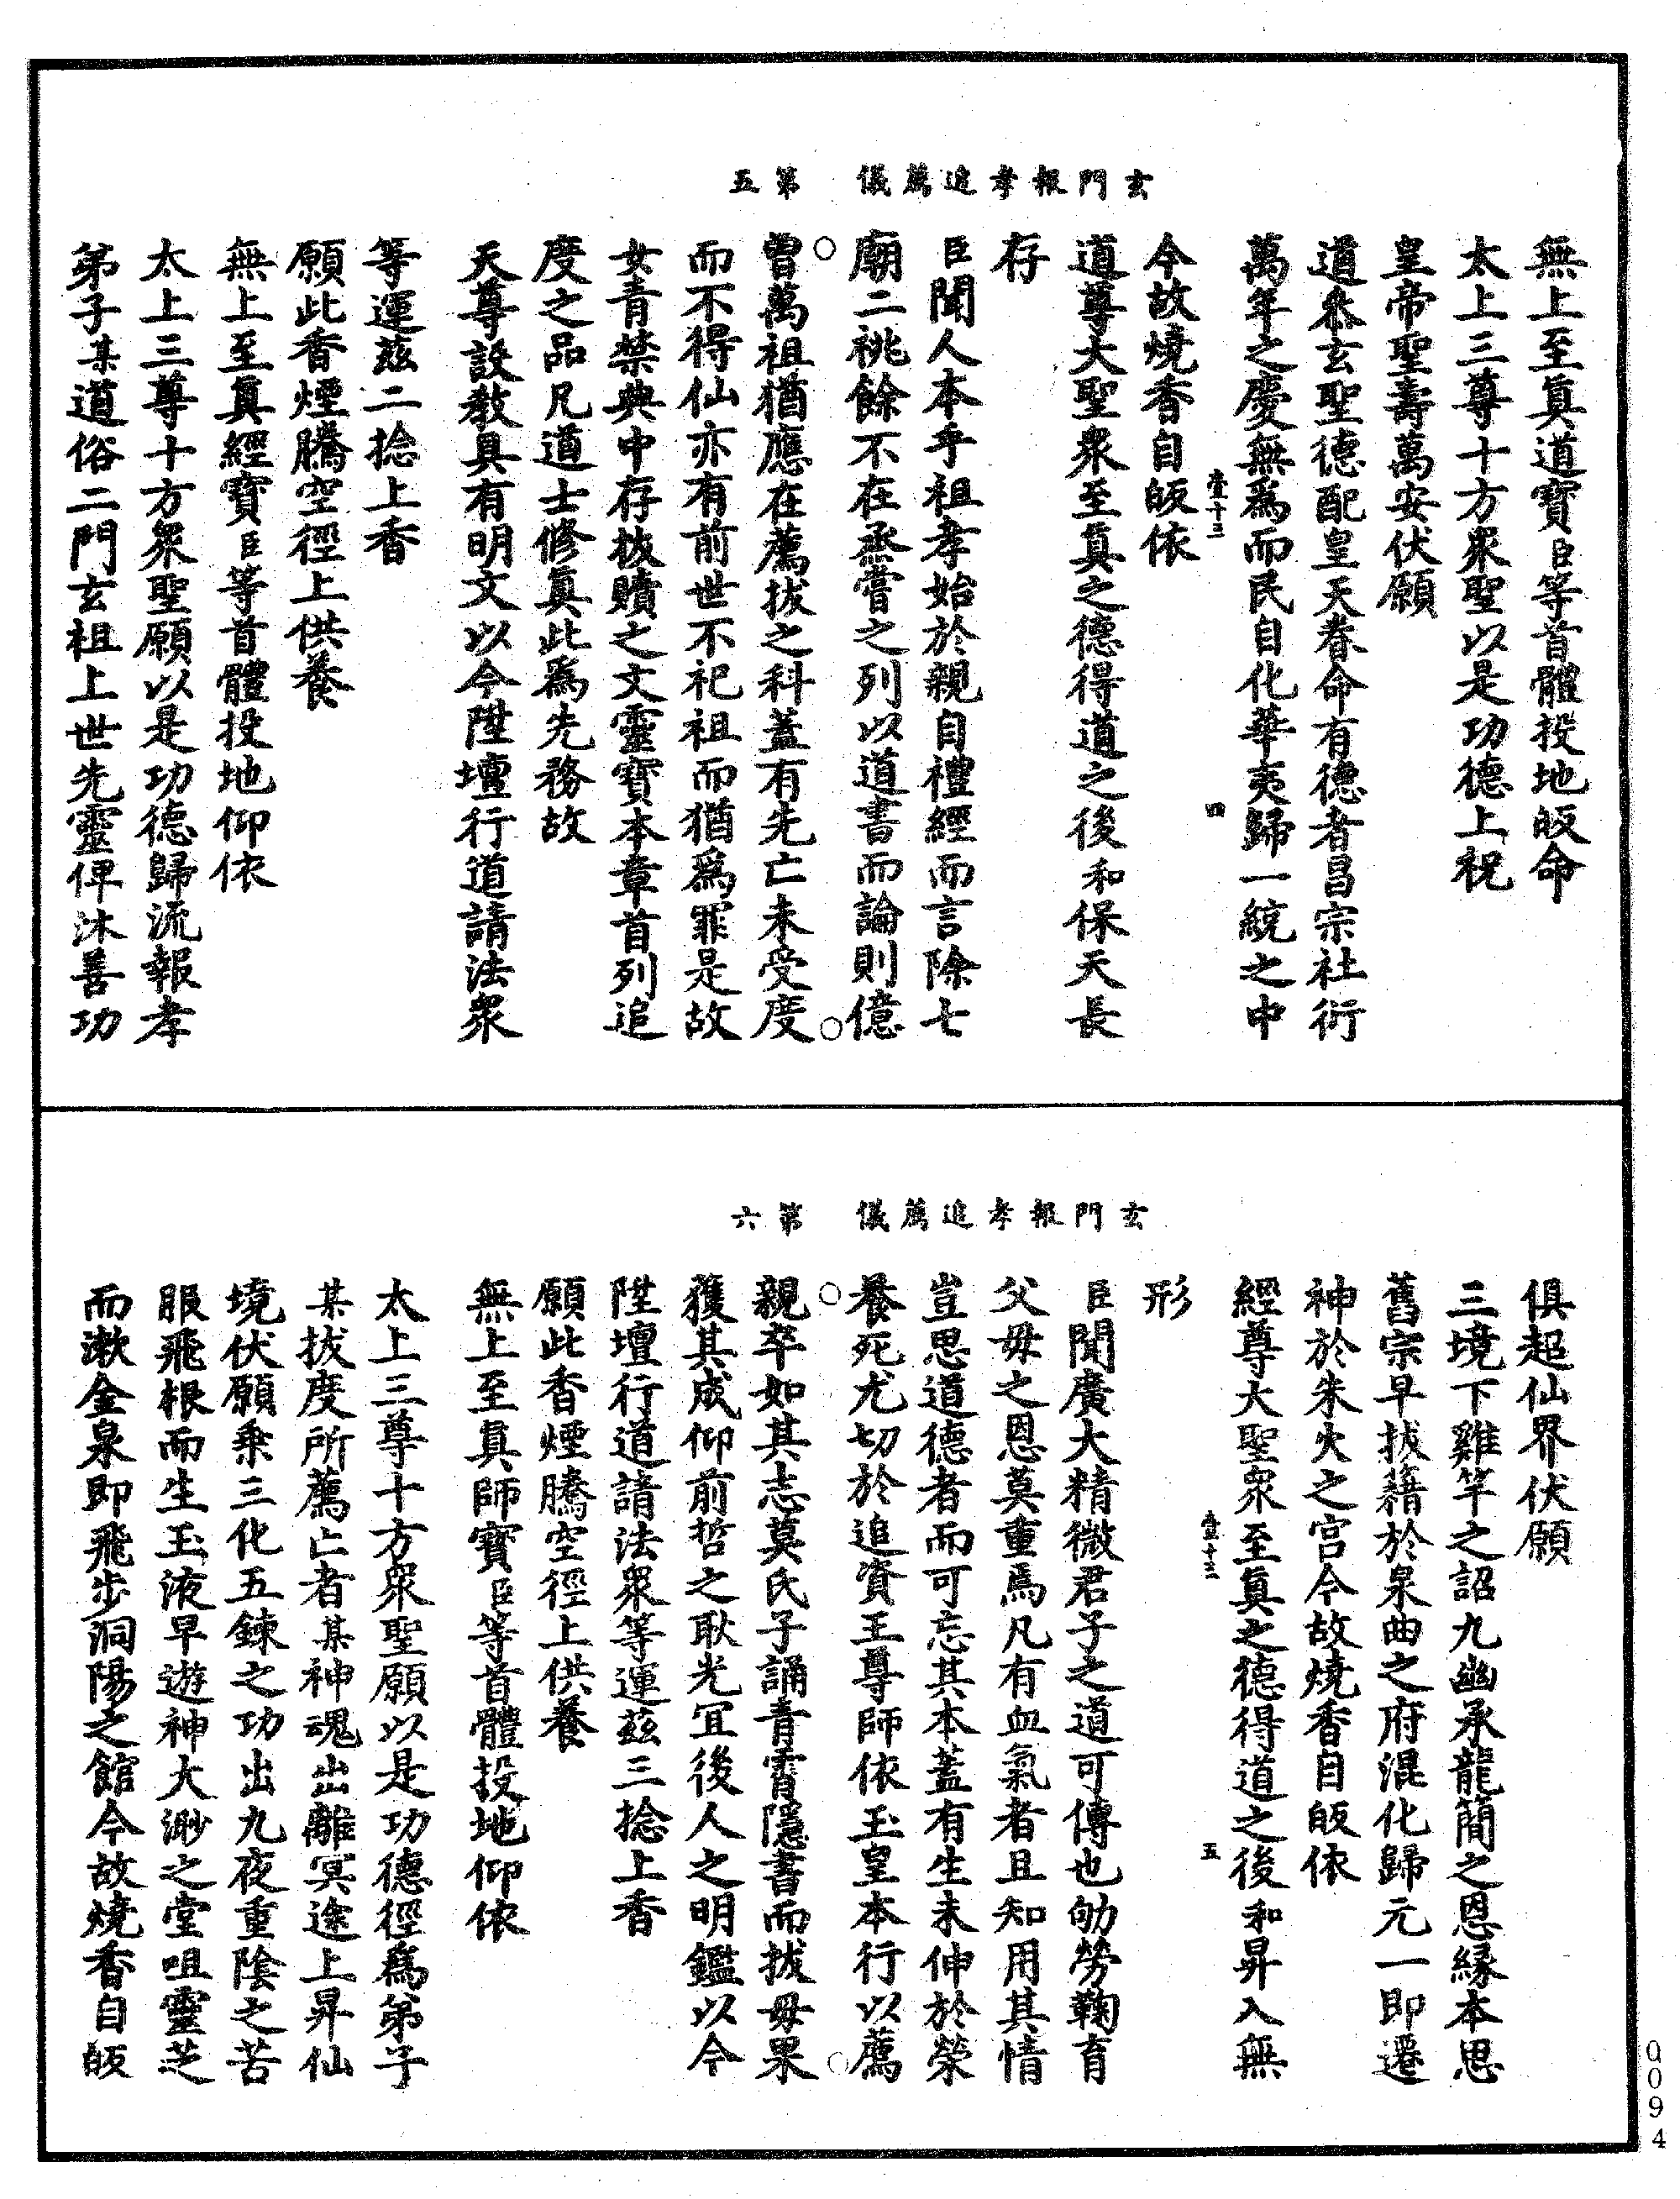 玄門報孝追薦儀　第五
無上至眞道寶臣等首體投地皈命
太上三尊十方衆聖以是功德上祝
皇帝聖壽萬安伏願
道參玄聖德配皇天眷命有德者昌宗社衍
萬年之慶無爲而民自化華夷歸一統之中
四
今故燒香自皈依
道尊大聖衆至眞之德得道之後和保天長
存
臣聞人本乎祖孝始於親自禮經而言除七
廟二祧餘不在烝嘗之列以道書而論則億
曾萬祖猶應在薦拔之科蓋有先亡未受度
而不得仙亦有前世不祀祖而猶爲罪是故
女青禁典中存拔贖之文靈寶本章首列追
度之品凡道士修眞此爲先務故
天尊設教具有明文以今陞壇行道請法衆
等運茲二捻上香
願此香煙騰空徑上供養
無上至眞經寶臣等首體投地仰依
太上三尊十方衆聖願以是功德歸流報孝
弟子某道俗二門玄祖上世先靈俾沐善功
玄門報孝追薦儀　第六
俱超仙界伏願
三境下雞竿之詔九幽承龍簡之恩緣本思
舊宗早拔籍於泉曲之府混化歸元一即遷
神於朱火之宮今故燒香自皈依
經尊大聖衆至眞之德得道之後和昇入無
五
形
臣聞廣大精微君子之道可傳也劬勞鞠育
父母之恩莫重焉凡有血氣者且知用其情
豈思道德者而可忘其本蓋有生未伸於榮
養死尤切於追資王尊師依玉皇本行以薦
親卒如其志莫氏子誦青霄隱書而拔母果
獲其成仰前哲之耿光宜後人之明鑑以今
陞壇行道請法衆等運茲三捻上香
願此香煙騰空徑上供養
無上至眞師寶臣等首體投地仰依
太上三尊十方衆聖願以是功德徑爲弟子
某拔度所薦亡者某神魂出離冥途上昇仙
境伏願乘三化五鍊之功出九夜重陰之苦
服飛根而生玉液早遊神大渺之堂咀靈芝
而漱金泉即飛步洞陽之館今故燒香自皈
0094